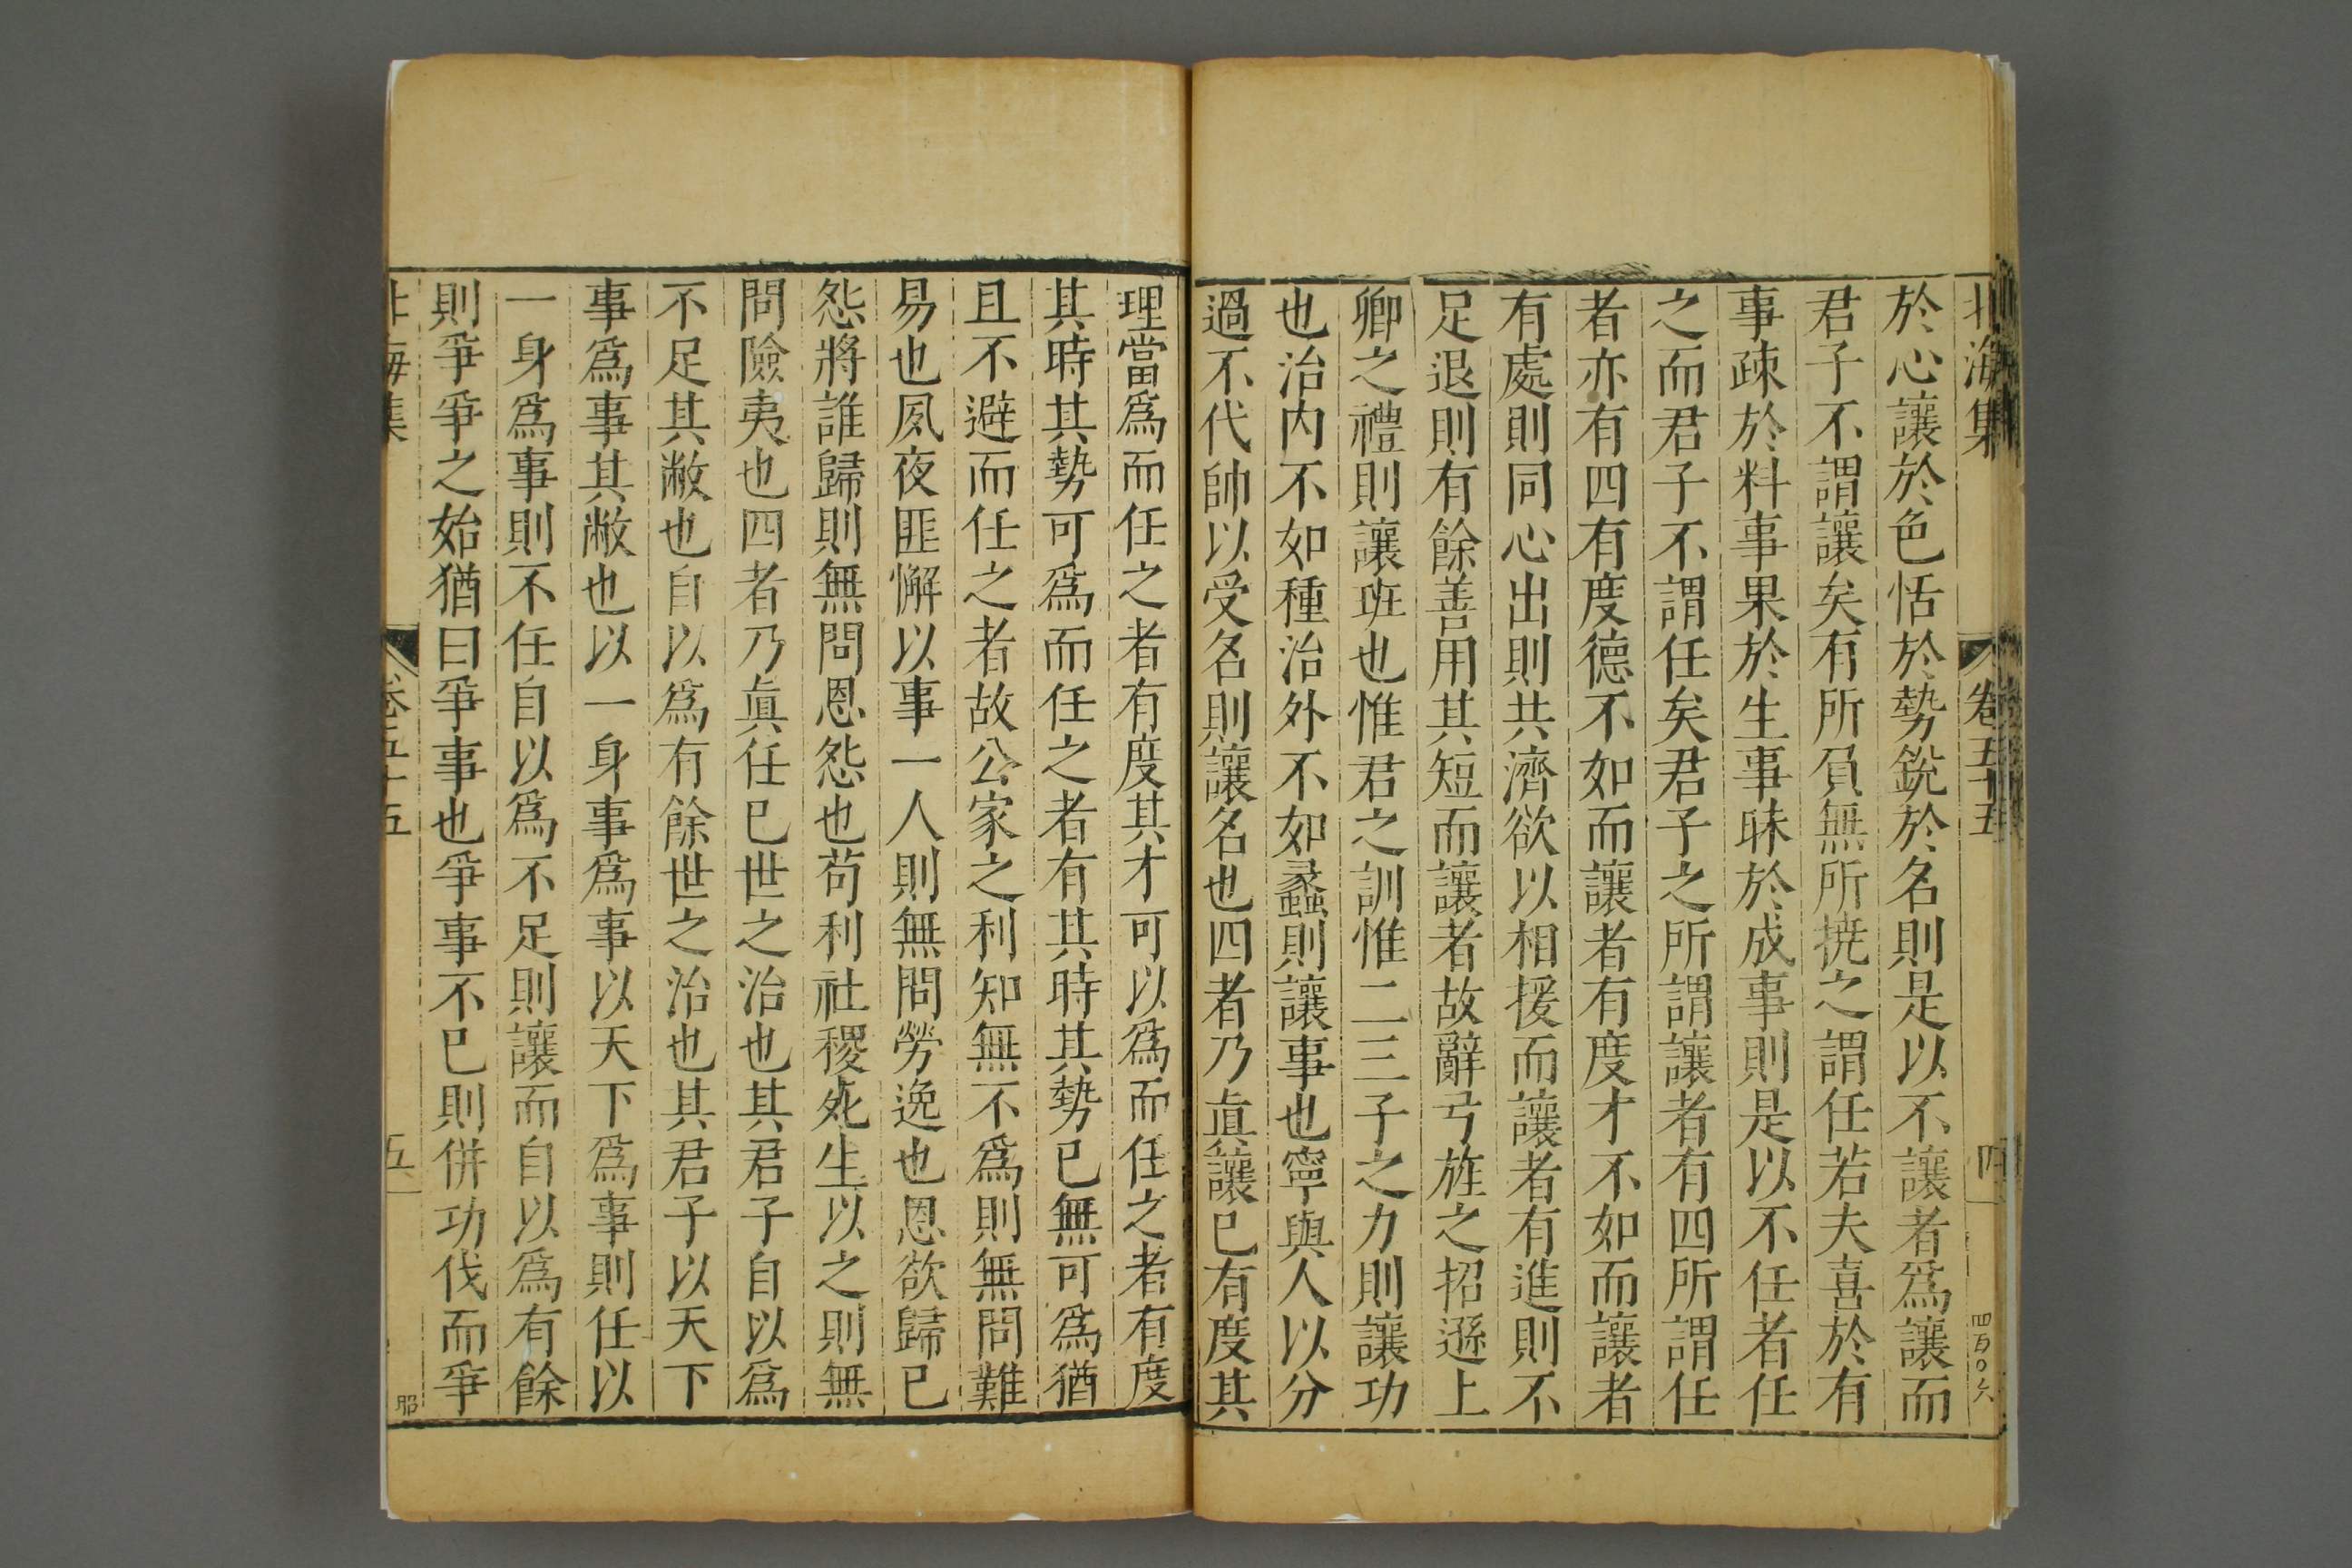 北海集 卷五十五 四 四百〇六
於心讓於色恬於勢銳於名則是以不讓者爲讓而
君子不謂讓矣有所負無所撓之謂任若夫喜於有
事疎於料事果於生事昧於成事則是以不任者任
之而君子不謂任矣君子之所謂讓者有四所謂任
者亦有四有度德不如而讓者有度才不如而讓者
有處則同心出則共濟欲以相援而讓者有進則不
足退則有餘善用其短而讓者故辭弓旌之招遜上
卿之禮則讓班也惟君之訓惟二三子之力則讓功
也治内不如種治外不如蠡則讓事也寧與人以分
過不代帥以受名則讓名也四者乃眞讓已有度其
理當爲而任之者有度其才可以爲而任之者有度
其時其勢可爲而任之者有其時其勢已無可爲猶
且不避而任之者故公家之利知無不爲則無問難
易也夙夜匪懈以事一人則無問勞逸也恩欲歸已
怨將誰歸則無問恩怨也苟利社稷死生以之則無
問險夷也四者乃眞任已世之治也其君子自以爲
不足其敝也自以爲有餘世之治也其君子以天下
事爲事其敝也以一身事爲事以天下爲事則任以
一身爲事則不任自以爲不足則讓而自以爲有餘
則爭爭之始猶曰爭事也爭事不已則併功伐而爭
北海集 卷五十五 五 昭